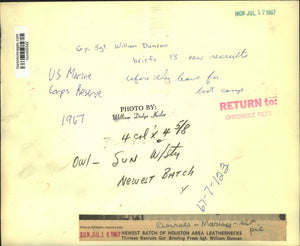 MON JUL 17 1967
Gy. Sgt. William Duncan
briefs 13 new recruits
US Marine
before they leave for
Corps Reserve
boot camp
RETURN to:
CHRONICLE FILES
1967
PHOTO BY:
4 col x 4 5/8
OW - SUN W/Sty
NEWEST BATCH
67-7-122
Recruits - Marines -
pic
SUN JUL 16 1967
NEWEST BATCH OF HOUSTON AREA LEATHERNECKS
Thirteen Recruits Get Briefing From Sgt. William Duncan